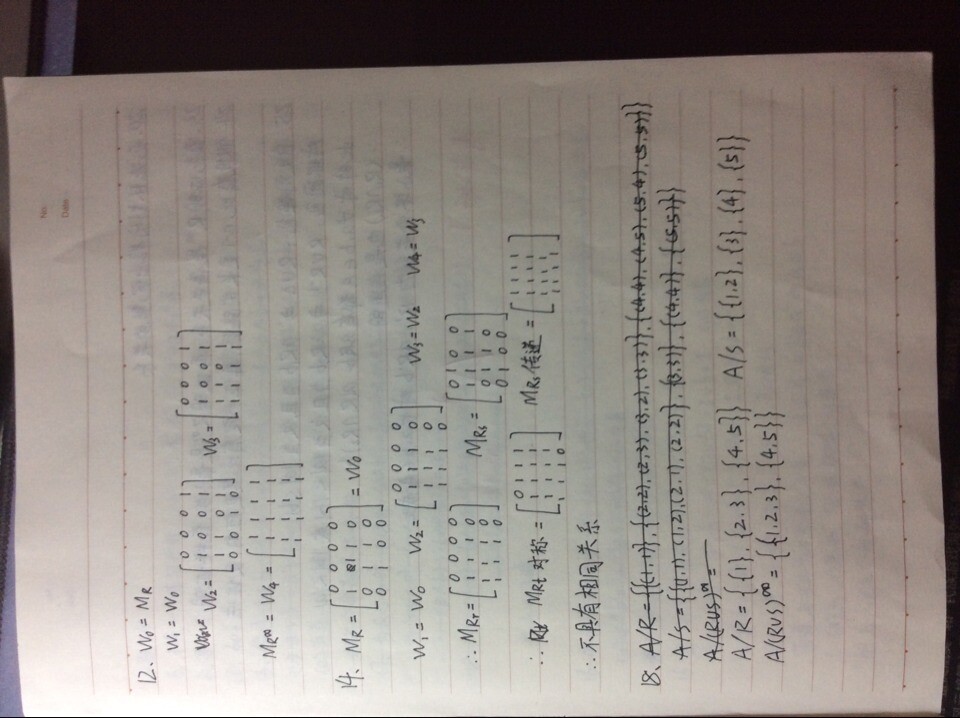 No.
Date
12、W₀ = M_R
W₁ = W₀
W₂ = [0 0 0 1; 1 0 0 1; 0 0 1 0; 0 0 1 0] W₃ = [0 0 0 1; 1 0 0 1; 1 1 1 1; 1 1 1 1]
M_R∞ = W₄ = [1 1 1 1; 1 1 1 1; 1 1 1 1; 1 1 1 1]
14、M_R = [0 0 0 0; 1 1 1 0; 0 1 1 0; 0 1 0 0] = W₀
W₁ = W₀ W₂ = [0 0 0 0; 1 1 1 0; 1 1 1 0; 1 1 1 0] W₃ = W₂ W₄ = W₃
∴ M_Rт = [0 0 0 0; 1 1 1 0; 1 1 1 0; 1 1 1 0] M_Rs = [0 1 0 0; 1 1 1 1; 0 1 1 0; 0 1 0 0]
∴ M_Rt 对称 = [0 1 1 1; 1 1 1 1; 1 1 1 1; 1 1 1 0] M_Rs 传递 = [1 1 1 1; 1 1 1 1; 1 1 1 1; 1 1 1 1]
∴不具有相同关系
18、A/R = {{(1,1)}, {(2,2), (2,3), (3,2), (3,3)}, {(4,4), (4,5), (5,4), (5,5)}}
A/S = {{(1,1), (1,2), (2,1), (2,2)}, {(3,3)}, {(4,4)}, {(5,5)}}
A/(RUS)^∞ =
A/R = {{1}, {2,3}, {4,5}} A/S = {{1,2}, {3}, {4}, {5}}
A/(RUS)^∞ = {{1,2,3}, {4,5}}